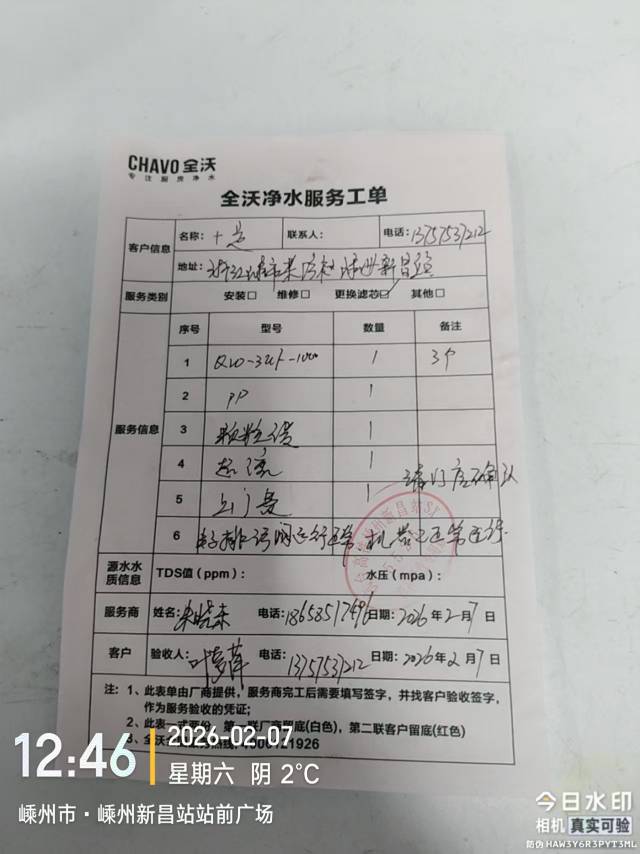 CHAVO 全沃
专注厨房净水
全沃净水服务工单
客户信息 名称: 联系人: 电话: 13757537212
地址:
服务类别 安装□ 维修□ 更换滤芯☑ 其他□
服务信息 序号 型号 数量 备注
1 1 3个
2 PP 1
3 颗粒 1
4 1 请门店确认
5 上门费 1
6 排污阀运行正常 机器
源水水质信息 TDS值 (ppm): 水压 (mpa):
服务商 姓名: 电话: 18658517496 日期: 2026年2月7日
客户 验收人: 电话: 13757537212 日期: 2026年2月7日
注: 1、此表单由厂商提供,服务商完工后需要填写签字,并找客户验收签字,
作为服务验收的凭证;
2、此表一式两份,第一联厂商留底(白色),第二联客户留底(红色)
12:46
2026-02-07
星期六 阴 2°C
嵊州市·嵊州新昌站站前广场
今日水印
相机 真实可验
防伪 HAW3Y6R3PYT3ML